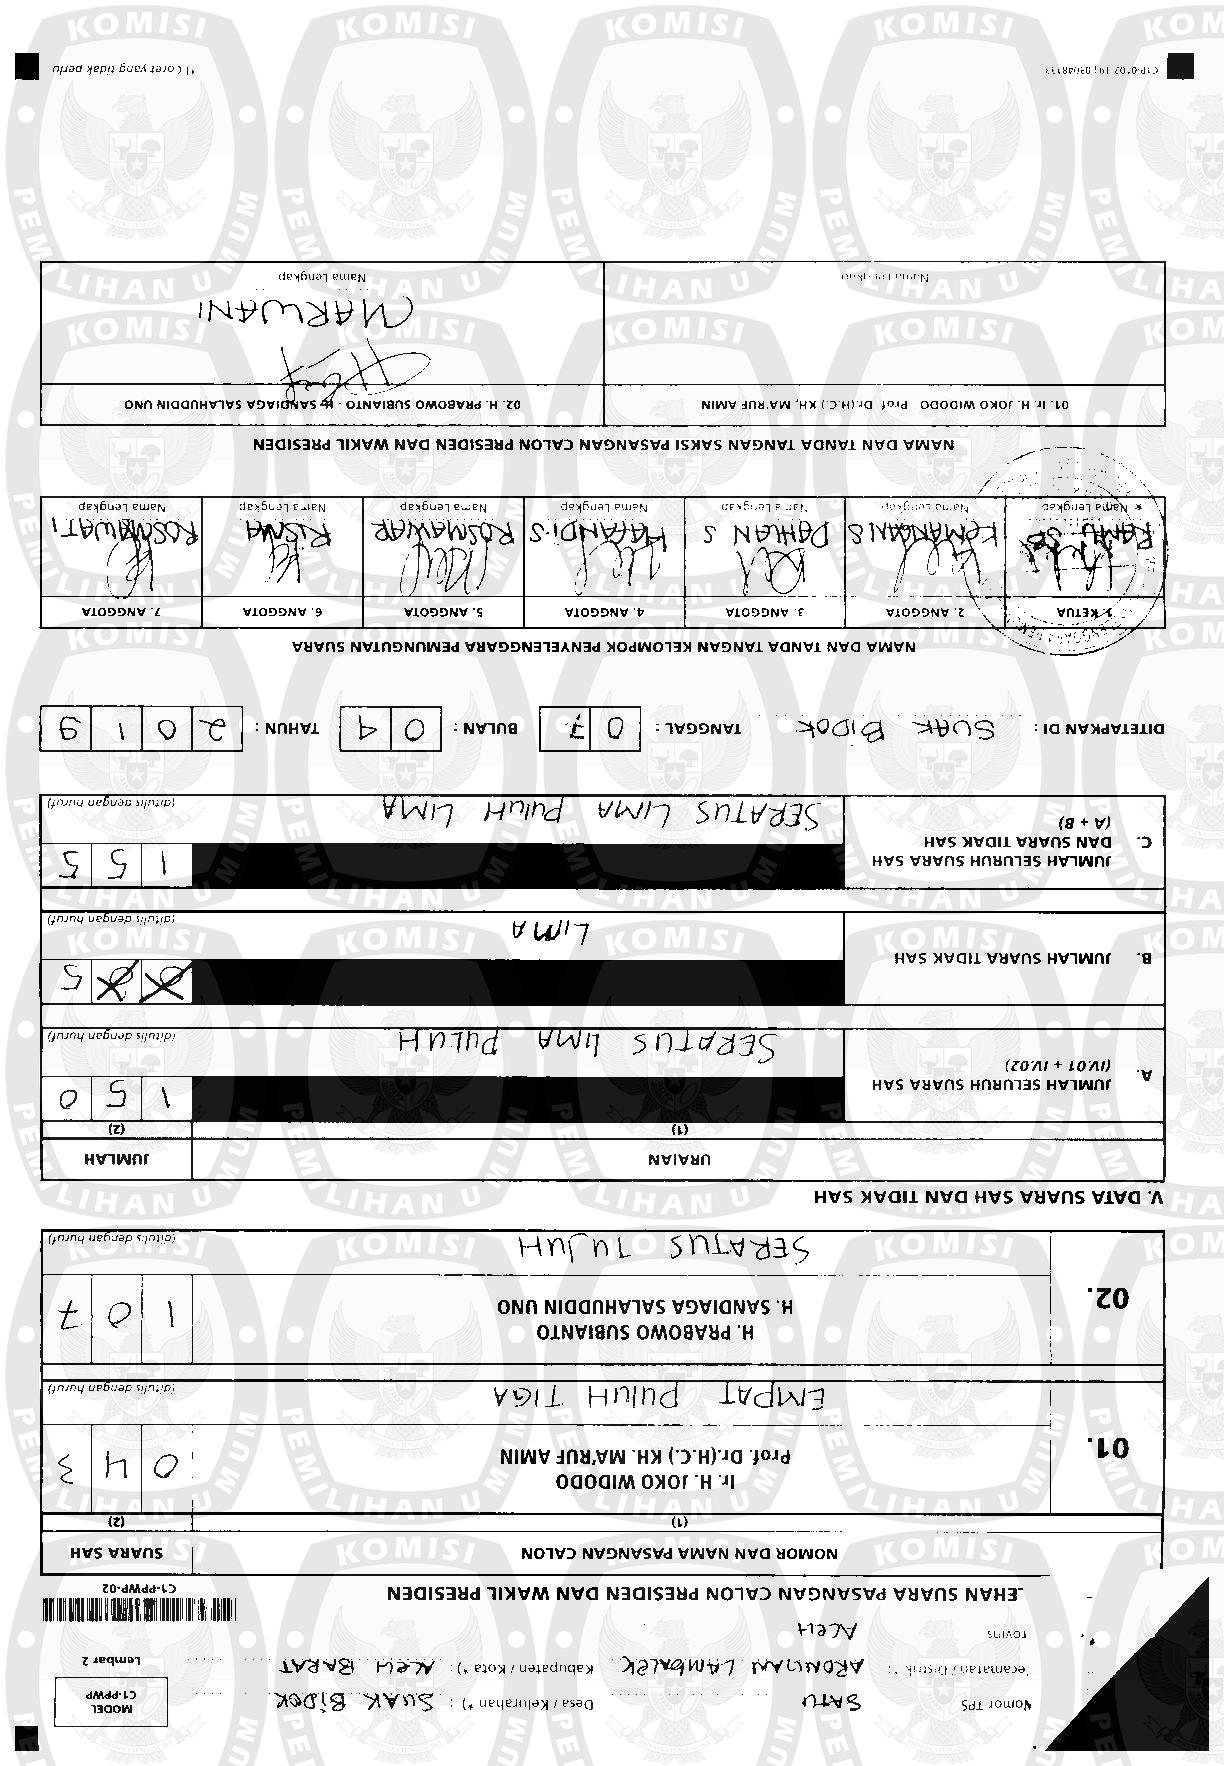 MODEL
C1-PPWP
Lembar 2
Nomor TPS SATU Desa / Kelurahan *) : SUAK BIDOK
Kecamatan / Distrik *) : ARONGAN LAMBALEK Kabupaten / Kota *) : ACEH BARAT
Provinsi ACEH
C1-PPWP-02
EHAN SUARA PASANGAN CALON PRESIDEN DAN WAKIL PRESIDEN
NOMOR DAN NAMA PASANGAN CALON SUARA SAH
(1) (2)
01. Ir. H. JOKO WIDODO
Prof. Dr.(H.C.) KH. MA'RUF AMIN 0 4 3
EMPAT PULUH TIGA (ditulis dengan huruf)
02. H. PRABOWO SUBIANTO
H. SANDIAGA SALAHUDDIN UNO 1 0 7
SERATUS TUJUH (ditulis dengan huruf)
V. DATA SUARA SAH DAN TIDAK SAH
URAIAN JUMLAH
(1) (2)
A. JUMLAH SELURUH SUARA SAH
(IV.01 + IV.02) 1 5 0
SERATUS LIMA PULUH (ditulis dengan huruf)
B. JUMLAH SUARA TIDAK SAH 5
LIMA (ditulis dengan huruf)
C. JUMLAH SELURUH SUARA SAH
DAN SUARA TIDAK SAH
(A + B) 1 5 5
SERATUS LIMA PULUH LIMA (ditulis dengan huruf)
DITETAPKAN DI : SUAK BIDOK TANGGAL : 0 7 BULAN : 0 4 TAHUN : 2 0 1 9
NAMA DAN TANDA TANGAN KELOMPOK PENYELENGGARA PEMUNGUTAN SUARA
1. KETUA 2. ANGGOTA 3. ANGGOTA 4. ANGGOTA 5. ANGGOTA 6. ANGGOTA 7. ANGGOTA
DAHLAN S ROSMAWAR RISMA ROSMAWATI
Nama Lengkap Nama Lengkap Nama Lengkap Nama Lengkap Nama Lengkap Nama Lengkap Nama Lengkap
NAMA DAN TANDA TANGAN SAKSI PASANGAN CALON PRESIDEN DAN WAKIL PRESIDEN
01. Ir. H. JOKO WIDODO Prof. Dr.(H.C.) KH, MA'RUF AMIN 02. H. PRABOWO SUBIANTO - H. SANDIAGA SALAHUDDIN UNO
MARWANI
Nama Lengkap Nama Lengkap
*) Coret yang tidak perlu
KOMISI PEMILIHAN UMUM